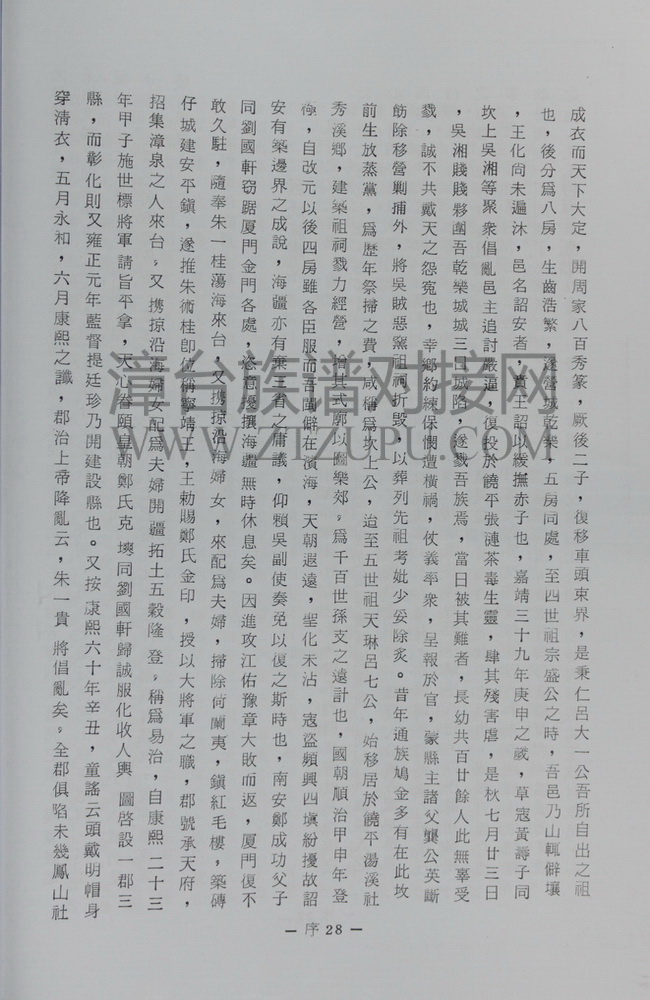 成衣而天下大定，開周家八百秀篆，厥後二子，復移車頭束界，是秉仁呂大一公吾所自出之祖
也，後分爲八房，生齒浩繁，遂營城乾樂，五房同處，至四世祖宗盛公之時，吾邑乃山輒僻壤
，王化尚未遍沐，邑名詔安者，貢王詔以緩撫赤子也，嘉靖三十九年庚申之歲，草寇黃壽子同
坎上吳湘等聚衆倡亂邑主追討嚴逼，復投於饒平張漣茶毒生靈，肆其殘害虐，是秋七月廿三日
，吳湘賤賤夥圍吾乾樂城城三日城陷，遂戮吾族焉，當日被其難者，長幼共百廿餘人此無辜受
戮，誠不共戴天之怨寃也，幸鄉約練保憫遭橫禍，仗義率衆，呈報於官，蒙縣主諸父龔公英斷
飭除移營剿捕外，將吳賊惡窯祖祠折毀，以葬列先祖考妣少妥除炙。昔年通族鳩金多有在此坟
前生放蒸黨，爲歷年祭掃之費，咸稱爲坎上公，迨至五世祖天琳呂七公，始移居於饒平湯溪社
秀溪鄉，建築祖祠戮力經營，增其式廓以圖樂郊，爲千百世孫支之遠計也，國朝順治甲申年登
極，自改元以後四房雖各臣服而吾閩僻在濱海，天朝遐遠，聖化未沾，寇盜頻興四塡紛擾故詔
安有築邊界之成說，海疆亦有棄三省之庸議，仰賴吳副使奏免以復之斯時也，南安鄭成功父子
同劉國軒窃踞厦門金門各處，恣意擾攘海疆無時休息矣。因進攻江佑豫章大敗而返，厦門復不
敢久駐，隨奉朱一桂蕩海來台，又携掠沿海婦女，來配爲夫婦，掃除荷蘭夷，鎭紅毛樓，築磚
仔城建安平鎭，遂推朱術桂卽位稱寧靖王，王勅賜鄭氏金印，授以大將軍之職，郡號承天府，
招集漳泉之人來台，又携掠沿海婦女配爲夫婦開疆拓土五穀隆登，稱爲易治，自康熙二十三
年甲子施世標將軍請旨平拿，天心眷頤皇朝鄭氏克塽同劉國軒歸誠服化收人輿 圖啓設一郡三
縣，而彰化則又雍正元年藍督提廷珍乃開建設縣也。又按康熙六十年辛丑，童謠云頭戴明帽身
穿淸衣，五月永和，六月康熙之讖，郡治上帝降亂云，朱一貴 將倡亂矣，全郡俱陷未幾鳳山社
— 序 28 —
漳台族谱对接网
WWW.ZIZUPU.COM